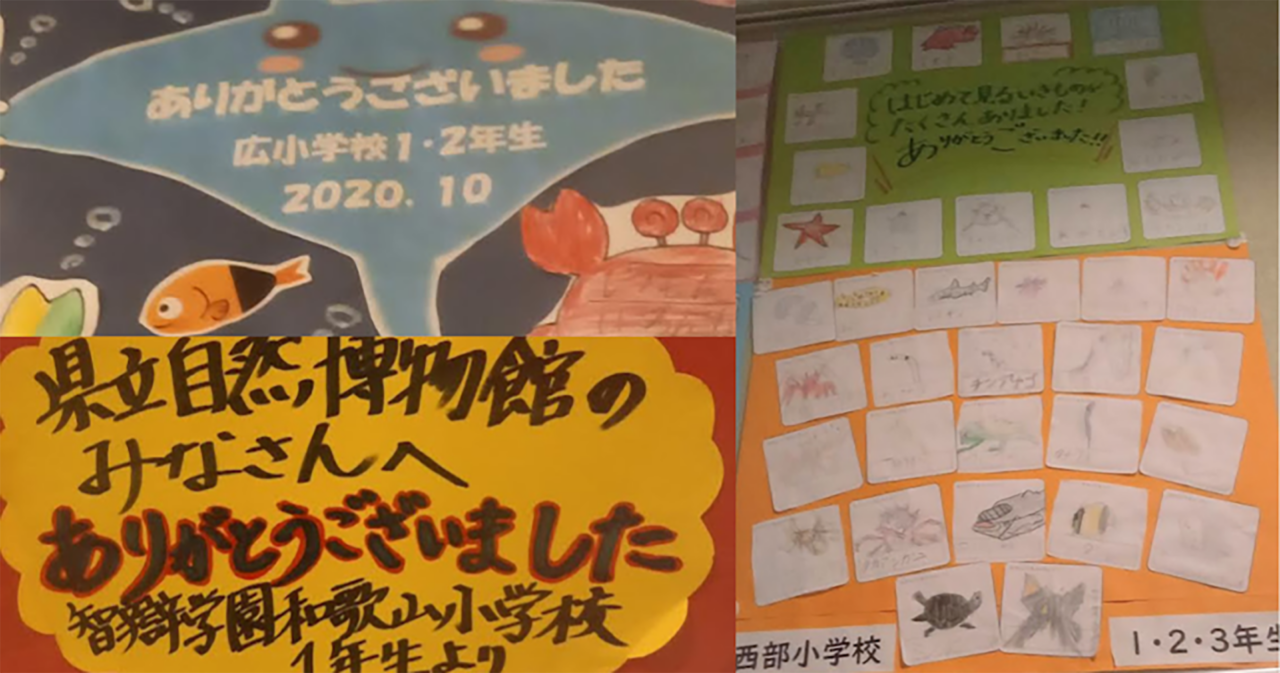 ありがとうございました
広小学校1・2年生
2020. 10
県立自然博物館の
みなさんへ
ありがとうございました
智辯学園和歌山小学校
1年生より
はじめて見るいきものが
たくさんありました!
ありがとうございました!!
チンアナゴ
西部小学校
1・2・3年生